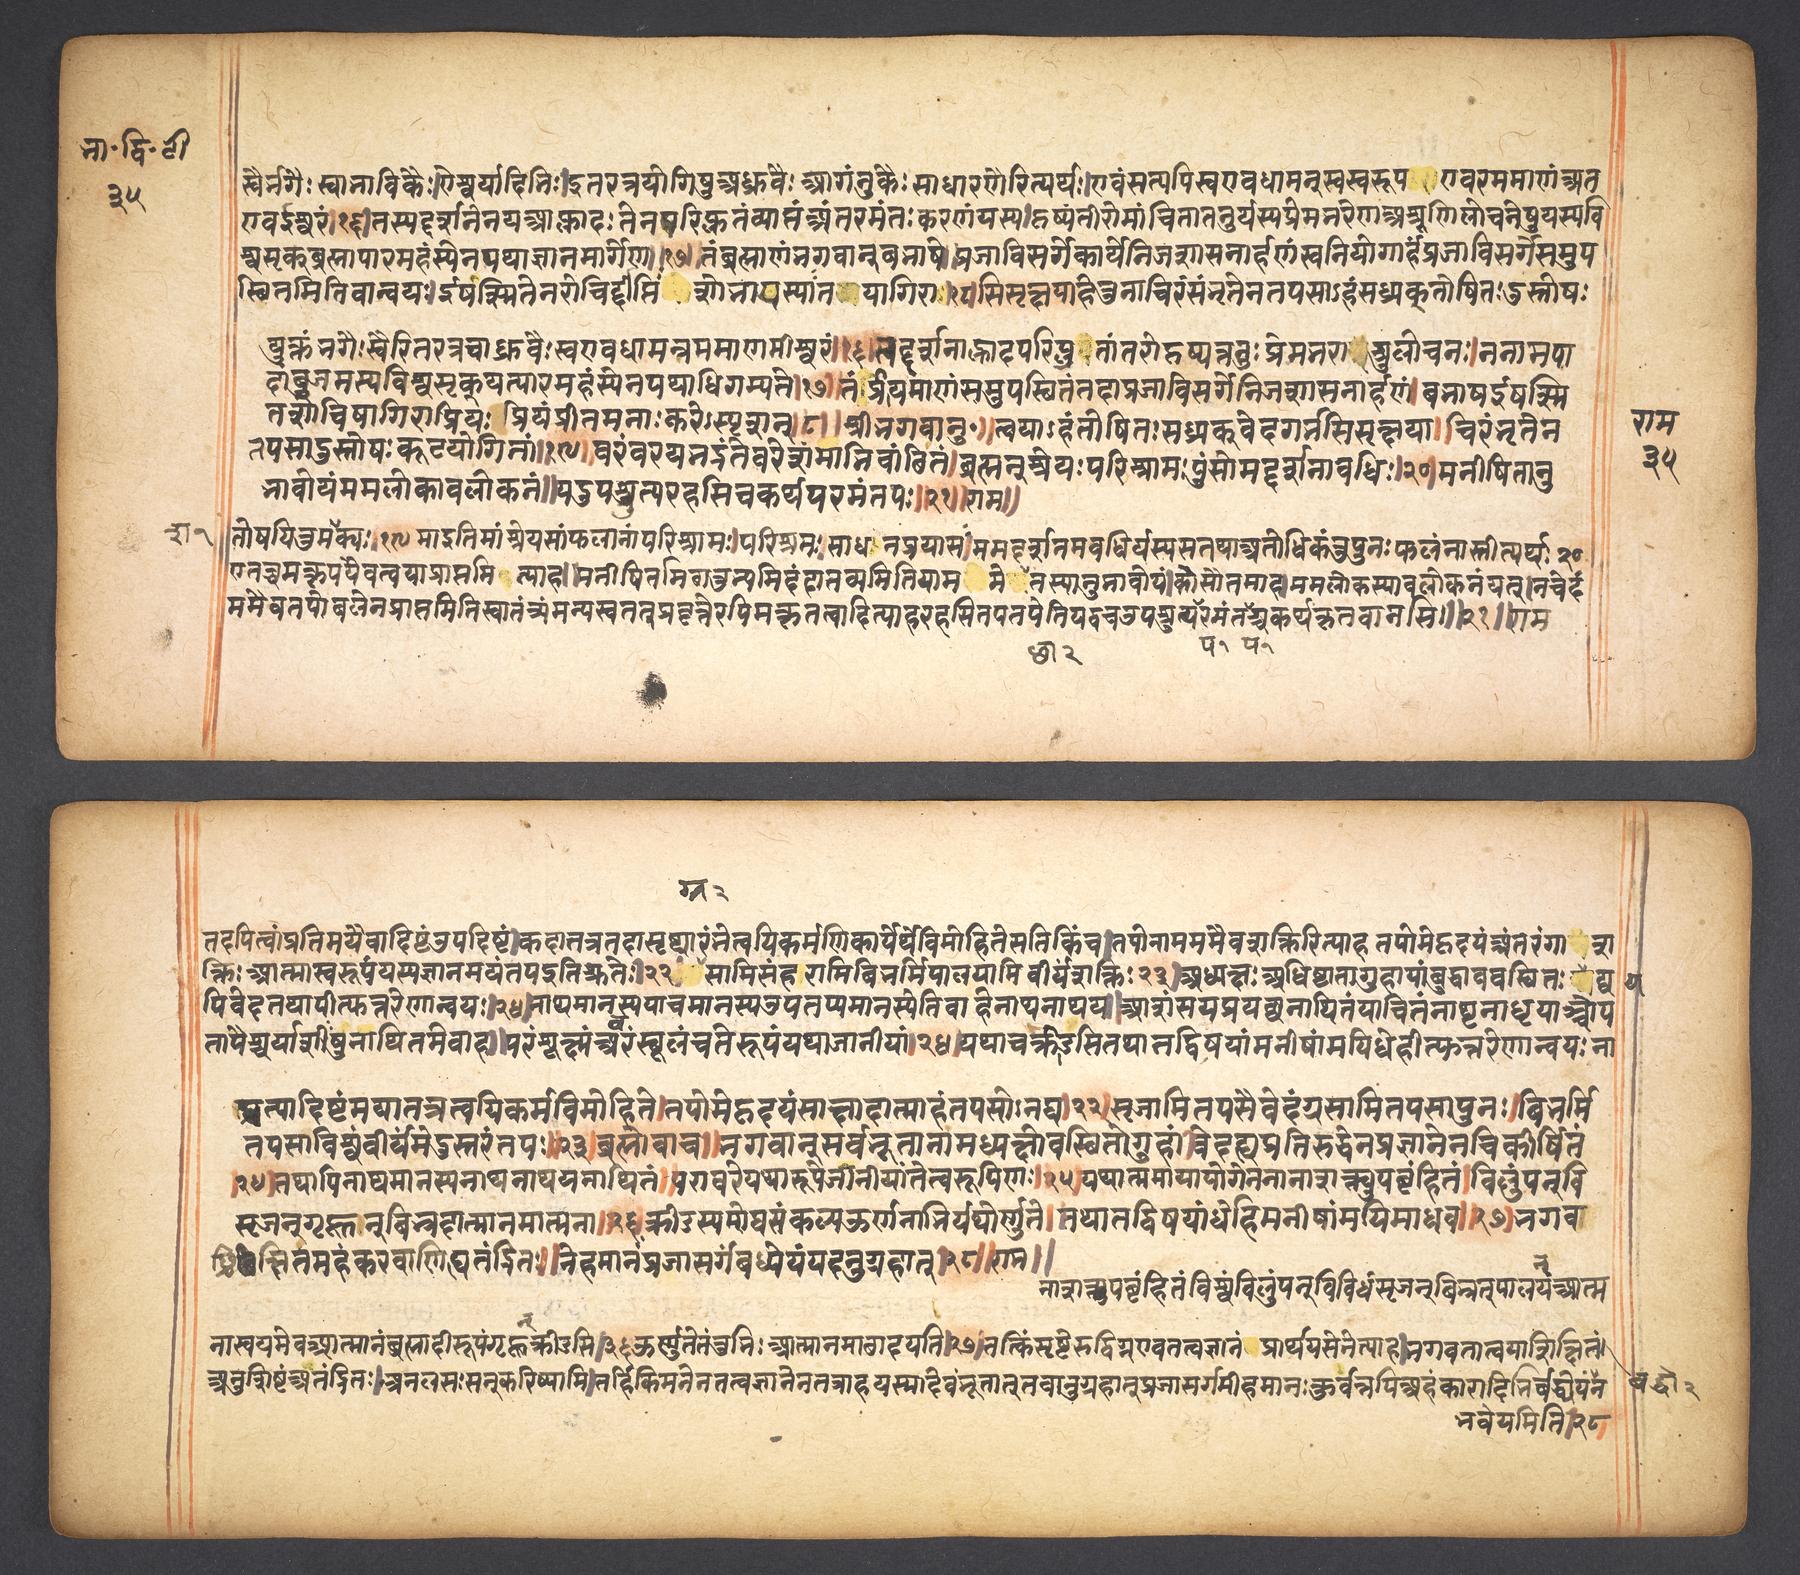 भा॰द्वि॰टी
३५
स्वैर्भगैः स्वाभाविकैः ऐश्वर्यादिभिः। इतरत्रयोगिषु अध्रुवैः आगंतुकैः साधारणैरित्यर्थः। एवंसत्यपिस्वएवधामन् स्वस्वरूप एवरममाणं अत
एवईश्वरं।१६।तस्यदर्शनेनयआल्हादः तेनपरिप्लुतंव्याप्तंअंतरमंतः करणंयस्य। हृष्यंतीरोमांचितातनुर्यस्यप्रेमभरेणअश्रूणिलोचनेषुयस्यवि
श्वसृक्ब्रह्मापारमहंस्येनपथाज्ञानमार्गेण।१७।तंब्रह्माणंभगवान् बभाषे।प्रजाविसर्गेकार्येनिजशासनार्हणंस्वनियोगार्हंप्रजाविसर्गेसमुप
स्थितमितिवान्वयः।ईषत्स्मितेनरोचिर्दीप्तिं यागिरा।१८सिसृक्षयाहेतुनाचिरंसंभृतेनतपसाऽहंसम्यक्तोषितःदुस्तोषः
युक्तंभगैःस्वैरितरत्रचाध्रुवैःस्वएवधामन्रममाणमीश्वरं।१६।तद्दर्शनाल्हादपरिप्लुतांतरोहृष्यत्तनुः प्रेमभराश्रुलोचनः।ननामपा
दांबुजमस्यविश्वसृक्यत्पारमहंस्येनपथाधिगम्यते।१७।तंप्रीयमाणंसमुपस्थितंतदाप्रजाविसर्गेनिजशासनार्हणं।बभाषईषत्स्मि
तशोचिषागिराप्रियः प्रियंप्रीतमनाः करेस्पृशन्।१८।श्रीभगवानु॰।त्वयाऽहंतोषितःसम्यक्वेदगर्भसिसृक्षया।चिरंभृतेन
तपसादुस्तोषःकूटयोगिनां।१९।वरंवरयभद्रंतेवरेशंमाभिवांछितं।ब्रह्मन्श्रेयःपरिश्रामः पुंसोमद्दर्शनावधिः।२०।मनीषितानु
भावोयंममलोकावलोकनं।यदुपश्रुत्यरहसिचकर्थपरमंतपः।२१।राम
राम
३५
शा१
तोषयितुमक्यः।१९माइतिमांश्रेयसांफलानांपरिश्रामः।परिश्रमः साधनप्रयासः ममदर्शनमवधिर्यस्यसतथाअतोधिकंतुपुनःफलंनास्तीत्यर्थः२०
एतच्चमत्कृपयैवत्वयाप्राप्तमि त्याह।मनीषितमितितुभ्यमिदंदातव्यमितियाम तस्यानुभावोयं।कोसौतमाह।ममलोकस्यावलोकनंयत्।नचेदं
ममैवतपोबलेनप्राप्तमितिस्वातंत्र्यंमन्यस्वतत्प्रवृत्तेरपिमत्कृतत्वादित्याहरहसितपतपेतियद्वचउपश्रुत्यरमंतश्चकर्थकृतवानसि।२१।राम
छा२
प१ प१
ग्न२
तदपित्वांप्रतिमयैवादिष्टंउपदिष्टं।कदातत्रतदासृष्ट्यारंभेत्वयिकर्मणिकार्येर्थेविमोहितेसतिकिंच।तपोनामममैवशक्तिरित्याह तपोमेहृदयंअंतरंगा श
क्तिःआत्मास्वरूपंयस्यज्ञानमयंतपइतिश्रुतेः।२२ सामिसंहरामिबिभर्मिपालयामि वीर्यंशक्तिः२३।अध्यक्षः अधिष्ठातागुहायांबुद्धाववस्थितः यद्य
य
पिवेदतथापीत्युत्तरेणान्वयः।२४।नाथमानस्ययाचमानस्यउपतप्यमानस्येतिवा हेनाथनाथय।आशंसयप्रयच्छनाथितंयाचितंनाथृनाधृयाञ्चोप
तापैश्वर्याशीःषुनाथितमेवाह।परंसूक्ष्मंअवरंस्थूलंचतेरूपंयथाजानीयां।२५।यथाचक्रीडसितथातद्विषयांमनीषांमयिधेहीत्युत्तरेणान्वयः ना
प्रत्यादिष्टंमयातत्रत्वयिकर्मविमोहिते।तपोमेहृदयंसाक्षादात्माहंतपसोऽनघ।२२।सृजामितपसैवेदंग्रसामितपसापुनः।बिभर्मि
तपसाविश्वंवीर्यंमेदुस्तरंतपः।२३।ब्रह्मोवाच।भगवान्सर्वभूतानामध्यक्षोवस्थितोगुहां।वेदह्यप्रतिरुद्धेनप्रज्ञानेनचिकीर्षितं
।२४।तथापिनाथमानस्यनाथनाथयनाथितं।परावरेयथारूपेजानीयांतेत्वरूपिणः।२५।यथात्ममायायोगेननानाशक्त्युपबृंहितं।विलुंपन्वि
सृजन्गृह्णन्बिभ्रदात्मानमात्मना।२६।क्रीडस्यमोघसंकल्पऊर्णनाभिर्यथोर्णुते।तथातद्विषयांधेहिमनीषांमयिमाधव।२७।भगव
च्छिक्षितमहंकरवाणिह्यतंद्रितः।नेहमानःप्रजासर्गंबध्येयंयदनुग्रहात्।२८।राम
नाशक्त्युपबृंहितंविश्वंविलुंपन्विविधंसृजन्बिभ्रत्पालयंआत्म
न्
नास्वयमेवआत्मानंब्रह्मादीरूपंगृह्णक्रीडसि।२६ऊर्णुतेतंतुभिः आत्मानमाछादयति।२७।तत्किंसृष्टेरुद्विग्नएवतत्वज्ञानं प्रार्थयसेनेत्याह।भगवतात्वयाशिक्षितं।
न्
अनुशिष्टंअतंद्रितः।अनलसःसन्करिष्यामि।तर्हिकिमनेनतत्वज्ञानेनतत्राहयस्मादेवंभूतात्तवानुग्रहात्प्रजासर्गमीहमानःकुर्वन्नपिअहंकारादिभिर्बद्धोयंन
बद्धो२
भवेयमिति।२८